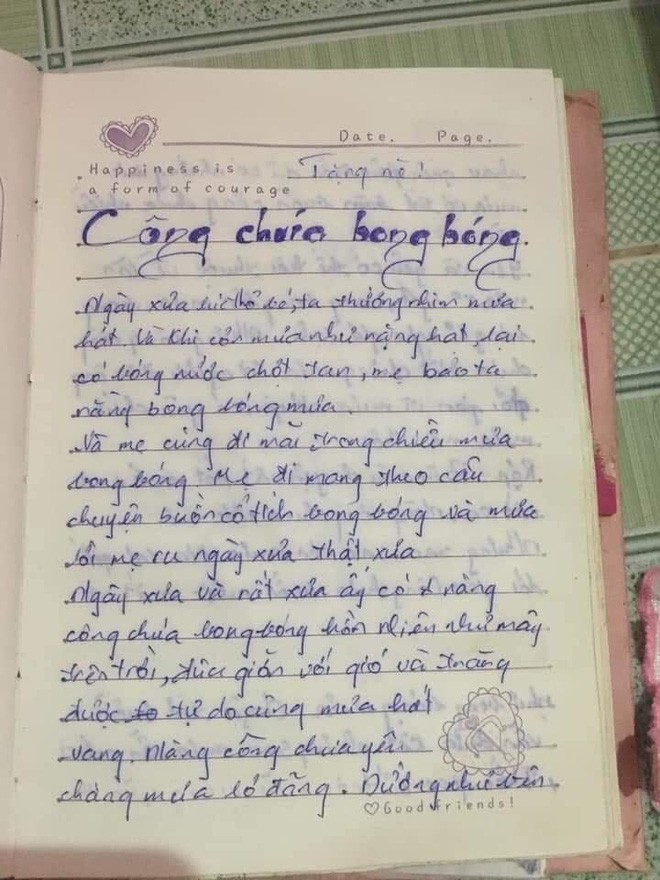 Date. Page.
Happiness is
a form of courage
Tặng nè!
Công chúa bong bóng.
Ngày xửa lúc thở bé, ta thường nhìn mưa
hát. Và khi cơn mưa như nặng hạt, lại
có bóng nước chợt tan, mẹ bảo ta
nàng bong bóng mưa.
Và mẹ cũng đi mãi trong chiều mưa
bong bóng. Mẹ đi mang theo câu
chuyện buồn cổ tích bong bóng và mưa
lời mẹ ru ngày xưa thật xưa
Ngày xưa và rất xưa ấy có 1 nàng
công chúa bong bóng hồn nhiên như mây
trên trời, đùa giỡn với gió và trăng
được tự do cùng mưa hát
vang. Nàng công chúa yêu
chàng mưa lơ đãng. Dường như bên
Good friends!